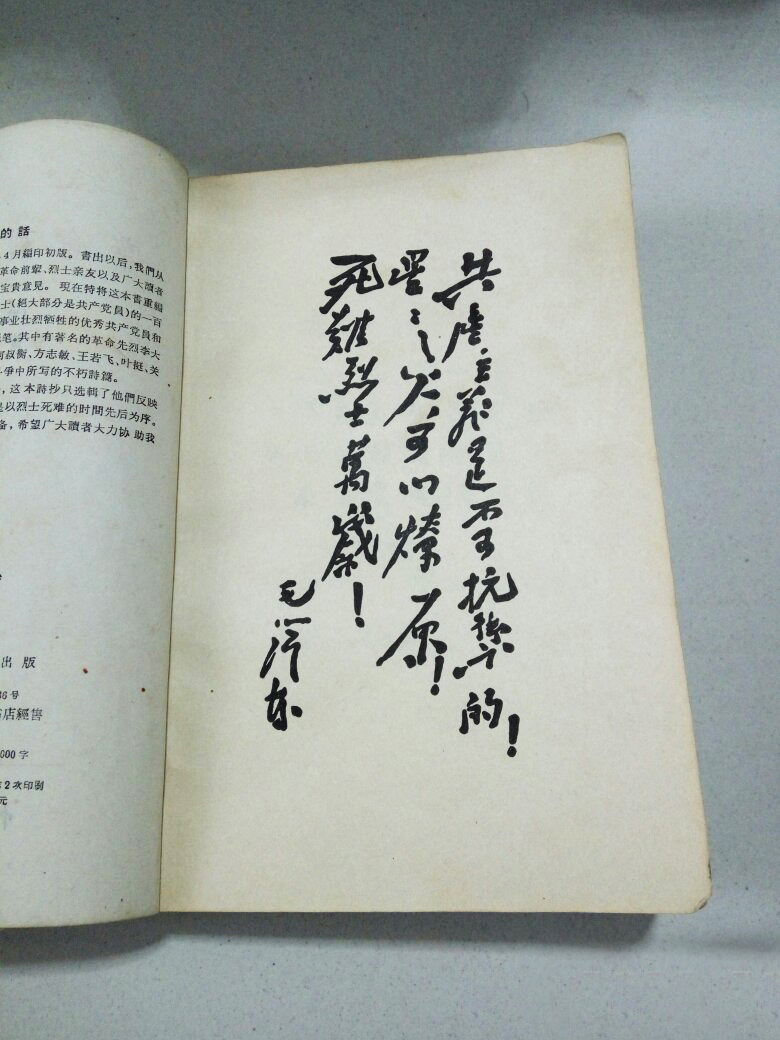 的話
4月編印初版。書出以后，我們从
革命前輩、烈士亲友以及广大讀者
宝貴意見。現在特将这本書重編
士(絕大部分是共产党員)的一百
事业壮烈牺牲的优秀共产党員和
笔。其中有著名的革命先烈李大
何叔衡、方志敏、王若飞、叶挺、关
斗爭中所写的不朽詩篇。
，这本詩抄只选輯了他們反映
是以烈士死难的时間先后为序。
备，希望广大讀者大力协助我
出版
36号
店經售
000字
第2次印刷
元
共產主義是不可抗禦的！
星星之火可以燎原！
死難烈士萬歲！
毛泽东